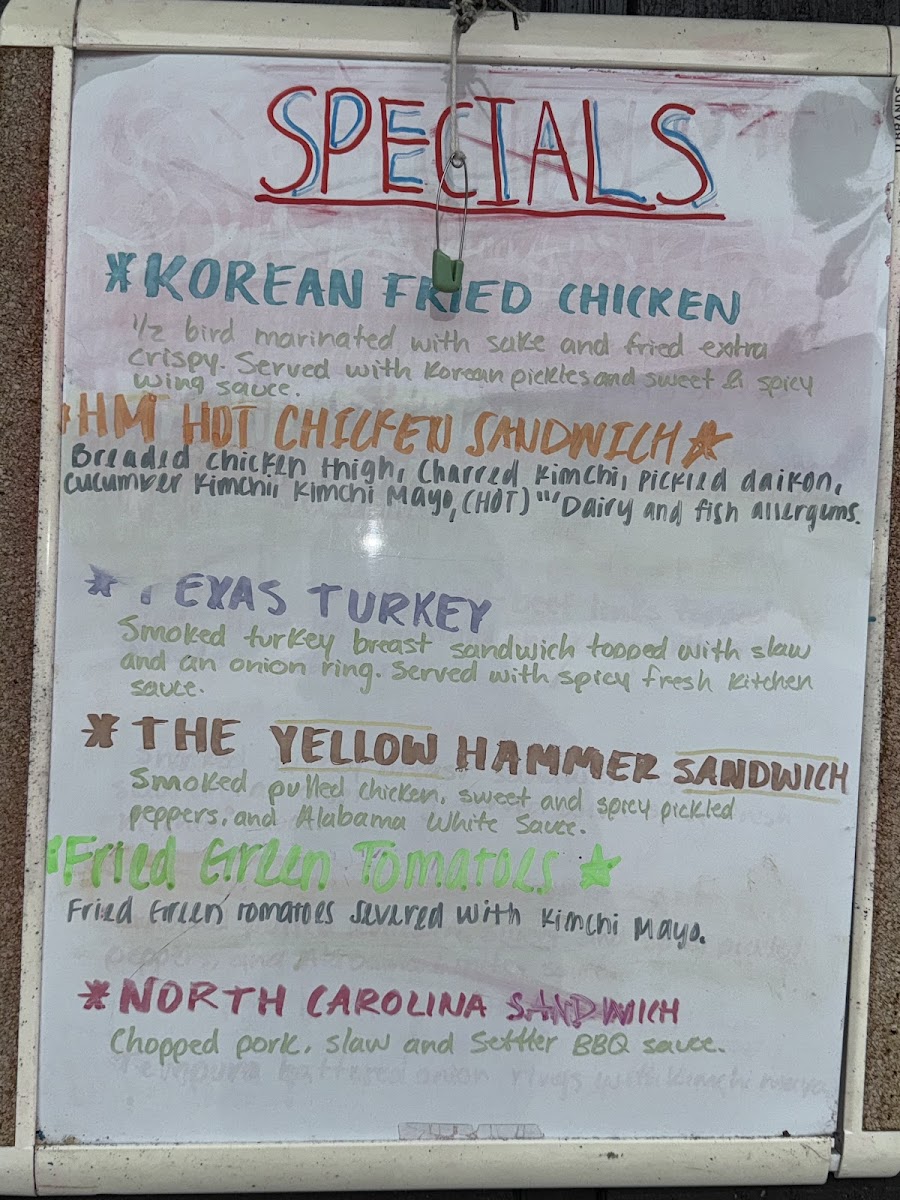 SPECIALS
*KOREAN FRIED CHICKEN
1/2 bird marinated with sake and fried extra
crispy. Served with Korean pickles and sweet & spicy
wing sauce.
HM HOT CHICKEN SANDWICH
Breaded chicken thigh, Charred Kimchi, pickled daikon,
cucumber Kimchi, Kimchi Mayo, (HOT) "" Dairy and fish allergums.
*TEXAS TURKEY
Smoked turkey breast sandwich topped with slaw
and an onion ring. Served with spicy fresh kitchen
sauce.
*THE YELLOW HAMMER SANDWICH
Smoked pulled chicken, sweet and spicy pickled
peppers, and Alabama White Sauce.
Fried Green Tomatoes
Fried Green tomatoes severed with Kimchi Mayo.
*NORTH CAROLINA SANDWICH
Chopped pork, slaw and Settler BBQ sauce.
Tempura battered onion rings with kimchi mayo